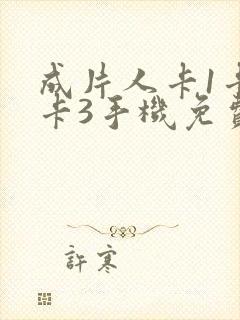 成片人卡1卡
卡3手機免費
許寒